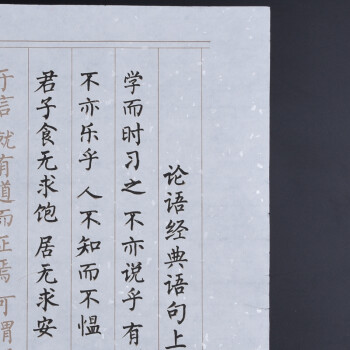 论语经典语句上
学而时习之 不亦说乎 有
不亦乐乎 人不知而不愠
君子食无求饱 居无求安
于言 就有道而正焉 可谓